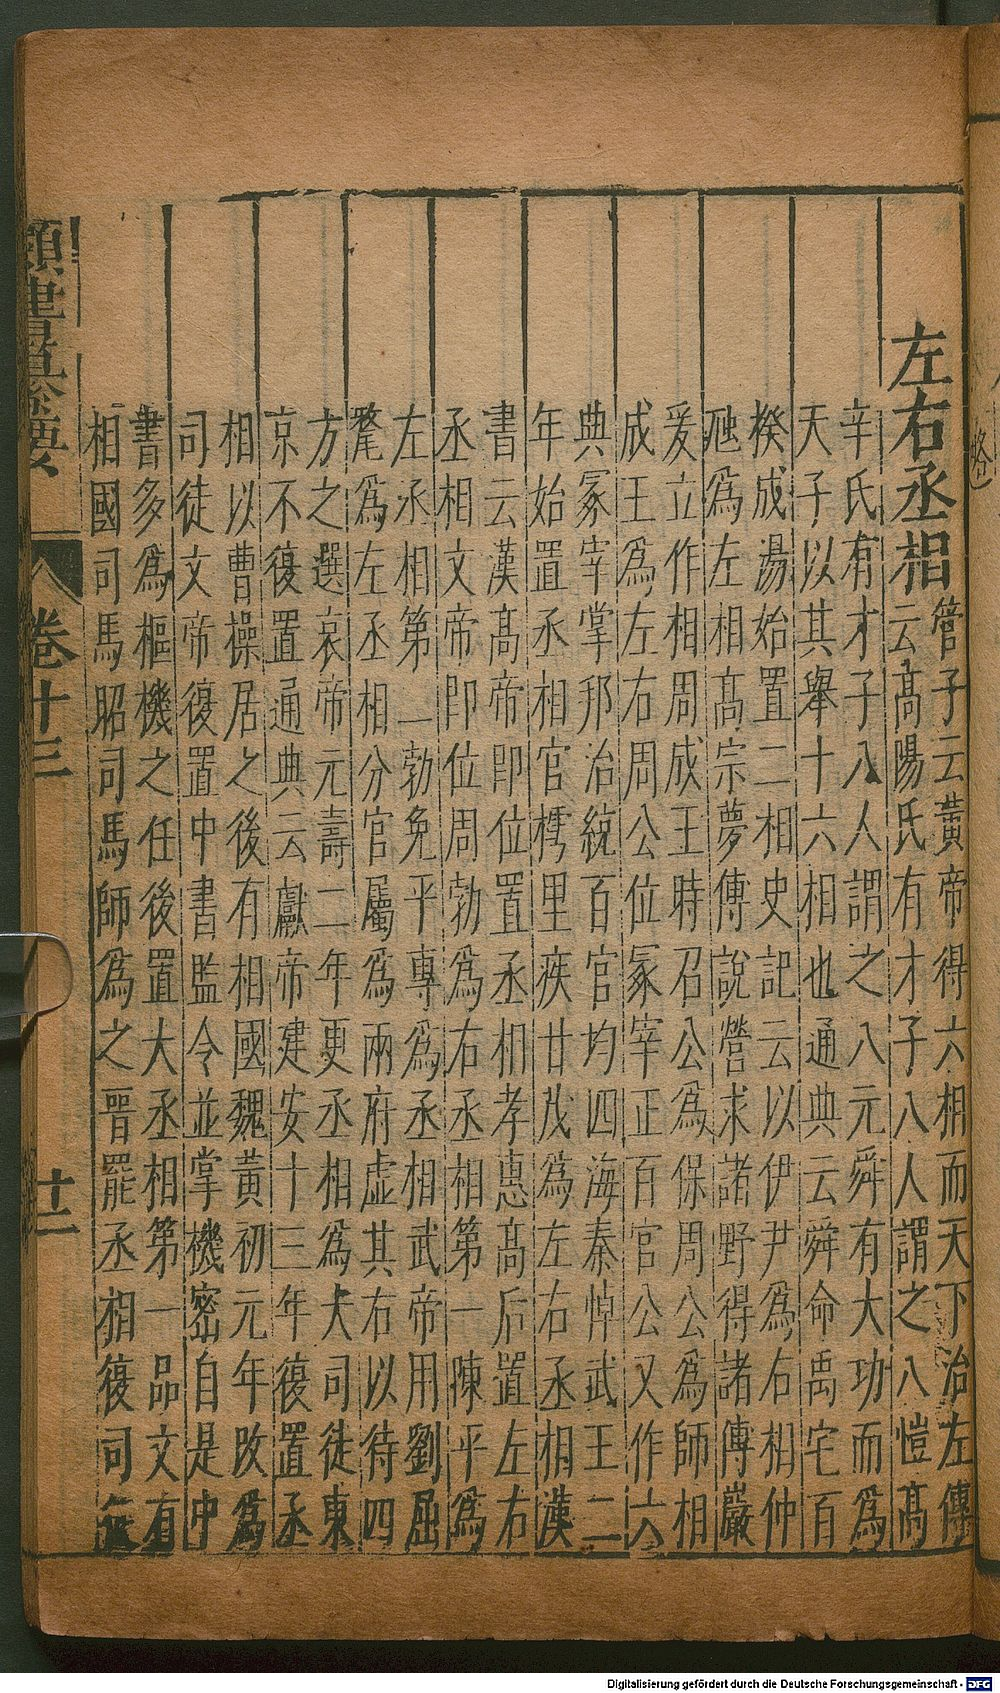 左右丞相
管子云黃帝得六相而天下治左傳
云高陽氏有才子八人謂之八愷高
辛氏有才子八人謂之八元舜有大功而為
天子以其舉十六相也通典云舜命禹宅百
揆成湯始置二相史記云以伊尹為右相仲
虺為左相高宗夢傅說營求諸野得諸傅巖
爰立作相周成王時召公為保周公為師相
成王為左右周公位冢宰正百官公又作六
典冢宰掌邦治統百官均四海秦悼武王二
年始置丞相官樗里疾甘茂為左右丞相漢
書云漢高帝即位置丞相孝惠高后置左右
丞相文帝即位周勃為右丞相第一陳平為
左丞相第二勃免平專為丞相武帝用劉屈
氂為左丞相分官屬為兩府虛其右以待四
方之選哀帝元壽二年更丞相為大司徒東
京不復置通典云獻帝建安十三年復置丞
相以曹操居之後有相國魏黃初元年改為
司徒文帝復置中書監令並掌機密自是中
書多為樞機之任後置大丞相第一品文有
相國司馬昭司馬師為之晉罷丞相復司徒
卷十三
廿二
Digitalisierung gefördert durch die Deutsche Forschungsgemeinschaft - DFG